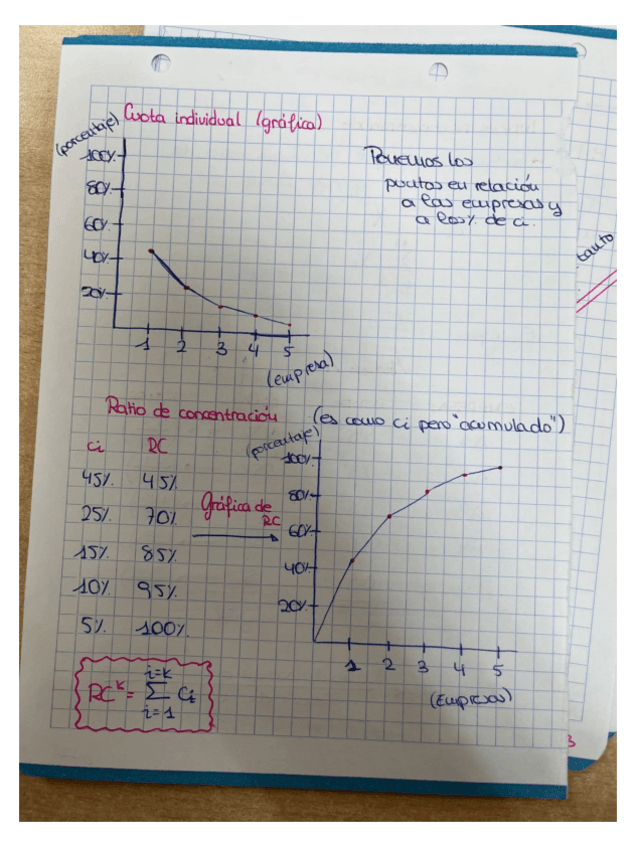 Cuota individual (gráfica)
(porcentaje)
100%
80%
60%
40%
20%
1 2 3 4 5
(empresa)
Ponemos los
puntos en relación
a las empresas y
a los % de ci.
tanto
Ratio de concentración (es como ci pero "acumulado")
ci RC
45% 45%
25% 70%
15% 85%
10% 95%
5% 100%
Gráfica de
RC
(porcentaje)
100%
80%
60%
40%
20%
1 2 3 4 5
(Empresas)
i=K
RC^K = ∑ Ci
i=1
3